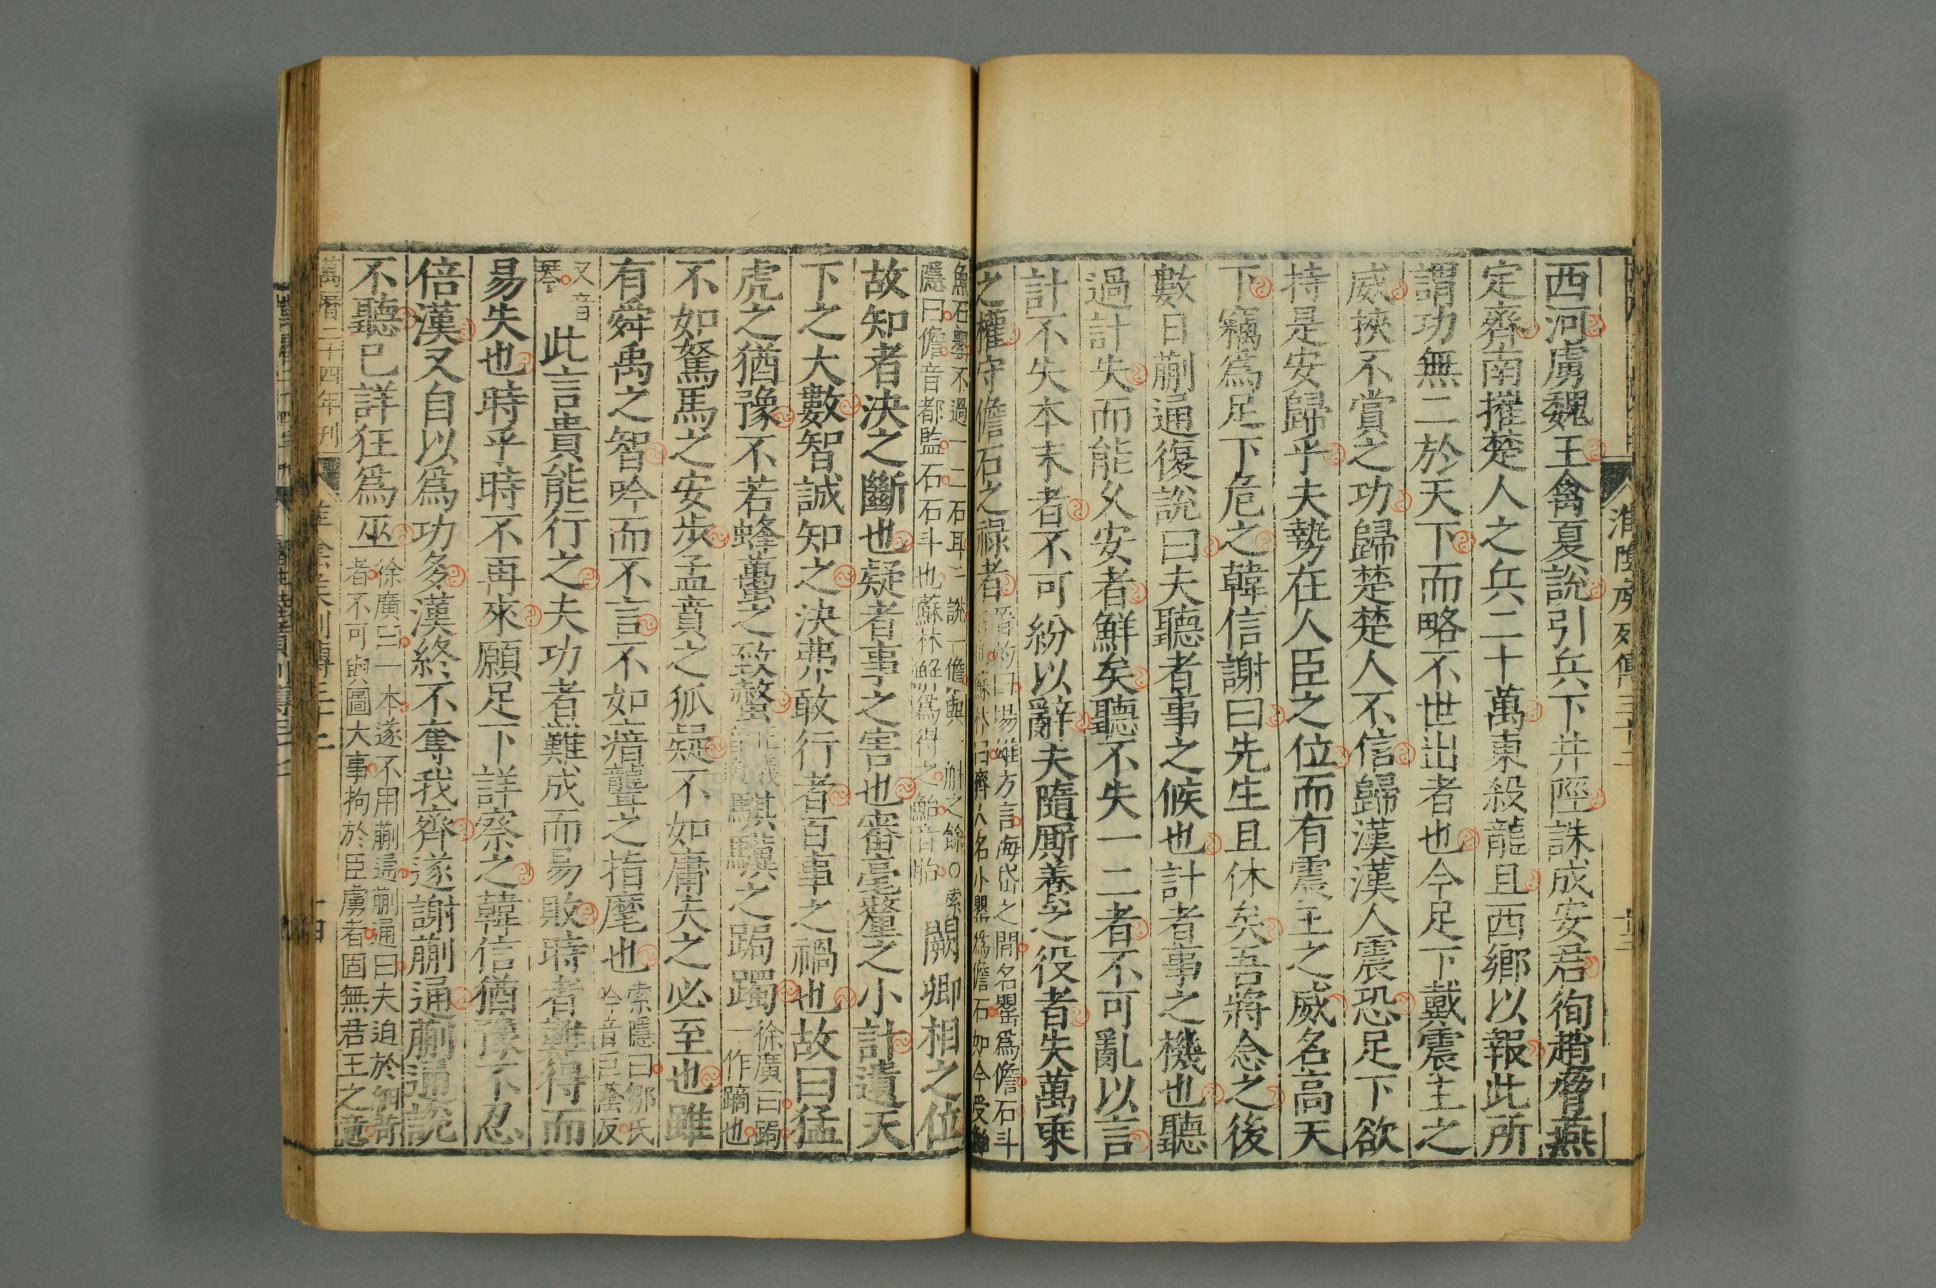 淮陰侯列傳三十二
西河虜魏王禽夏說引兵下井陘誅成安君徇趙脅燕
定齊南摧楚人之兵二十萬東殺龍且西鄉以報此所
謂功無二於天下而略不世出者也今足下戴震主之
威挾不賞之功歸楚楚人不信歸漢漢人震恐足下欲
持是安歸乎夫勢在人臣之位而有震主之威名高天
下竊爲足下危之韓信謝曰先生且休矣吾將念之後
數日蒯通復說曰夫聽者事之候也計者事之機也聽
過計失而能久安者鮮矣聽不失一二者不可亂以言
計不失本末者不可紛以辭夫隨厮養之役者失萬乘
之權守儋石之祿者
晉灼曰揚雄方言海岱之間名罌爲儋石斗
蘇林曰齊人名小罌爲儋石如今受鮐
魚石罌不過一二石耳一說一儋與一斛之餘○索
隱曰儋音都監石石斗也蘇林解爲得之鮐音胎
闕卿相之位
故知者決之斷也疑者事之害也審毫釐之小計遺天
下之大數智誠知之決弗敢行者百事之禍也故曰猛
虎之猶豫不若蜂蠆之致螫
騏驥之跼躅
徐廣曰跼
一作蹢也
不如駑馬之安步孟賁之狐疑不如庸夫之必至也雖
有舜禹之智吟而不言不如瘖聾之指麾也
索隱曰鄒氏
吟音巨蔭反
又音
琴
此言貴能行之夫功者難成而易敗時者難得而
易失也時乎時不再來願足下詳察之韓信猶豫不忍
倍漢又自以爲功多漢終不奪我齊遂謝蒯通蒯通說
不聽已詳狂爲巫
徐廣曰一本遂不用蒯通蒯通曰夫迫於細苛
者不可與圖大事拘於臣虜者固無君王之意
萬曆二十四年刊
淮陰侯列傳三十二
十四